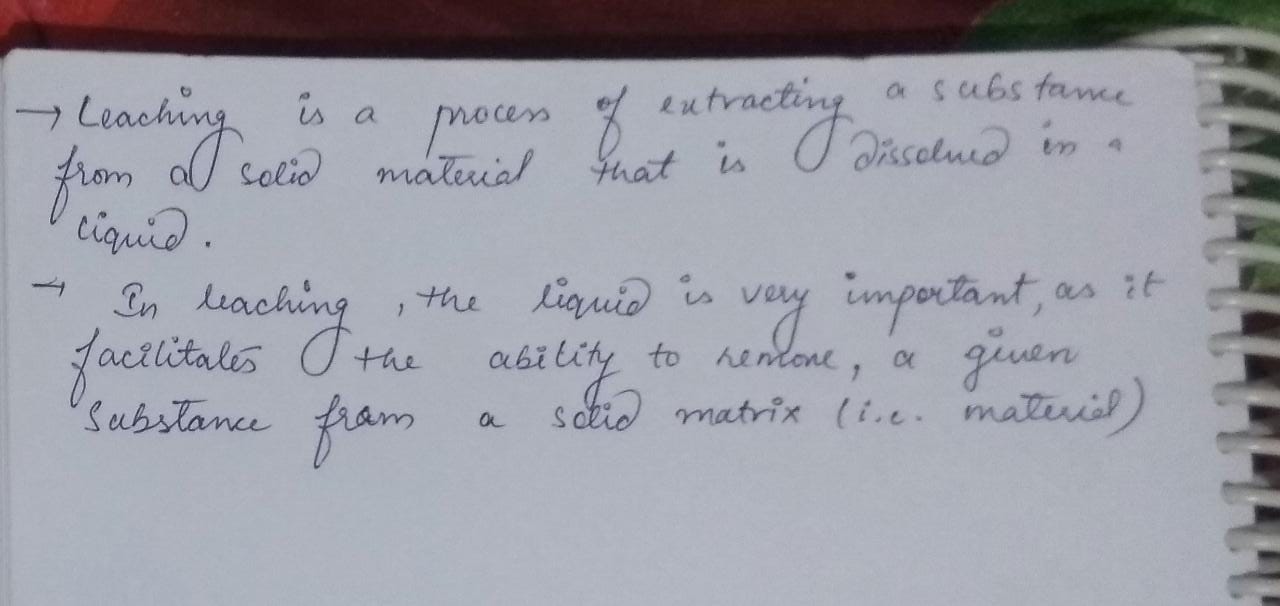 → Leaching is a process of extracting a substance
from a solid material that is dissolved in a
liquid.
→ In leaching, the liquid is very important, as it
facilitates the ability to remove, a given
substance from a solid matrix (i.e. material)